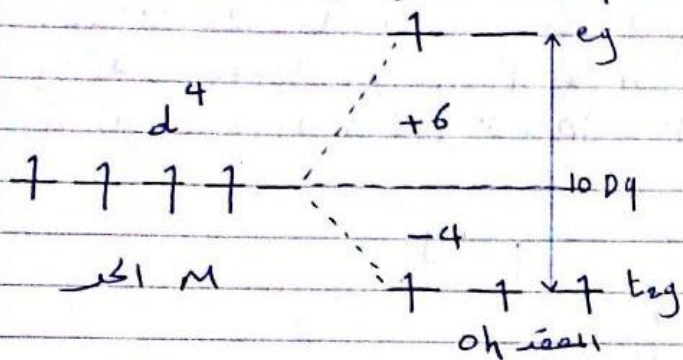 eg
d⁴
+6
10 Dq
-4
M الحر
t₂g
المعقد Oh